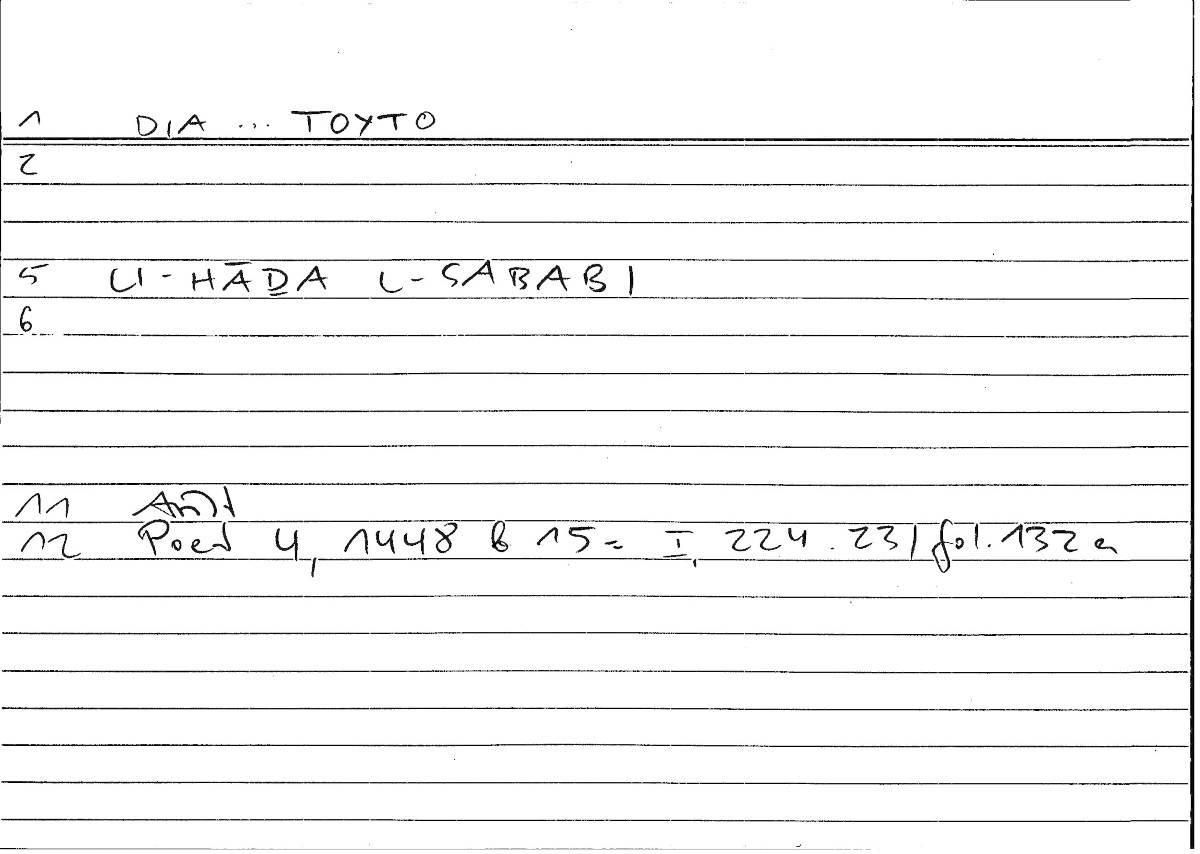 1 DIA ... TOYTO
2
5 LI-HĀḎA L-SABABI
6
11 Arist
12 Poet 4, 1448 b 15 = I, 224.23 / fol. 132 a